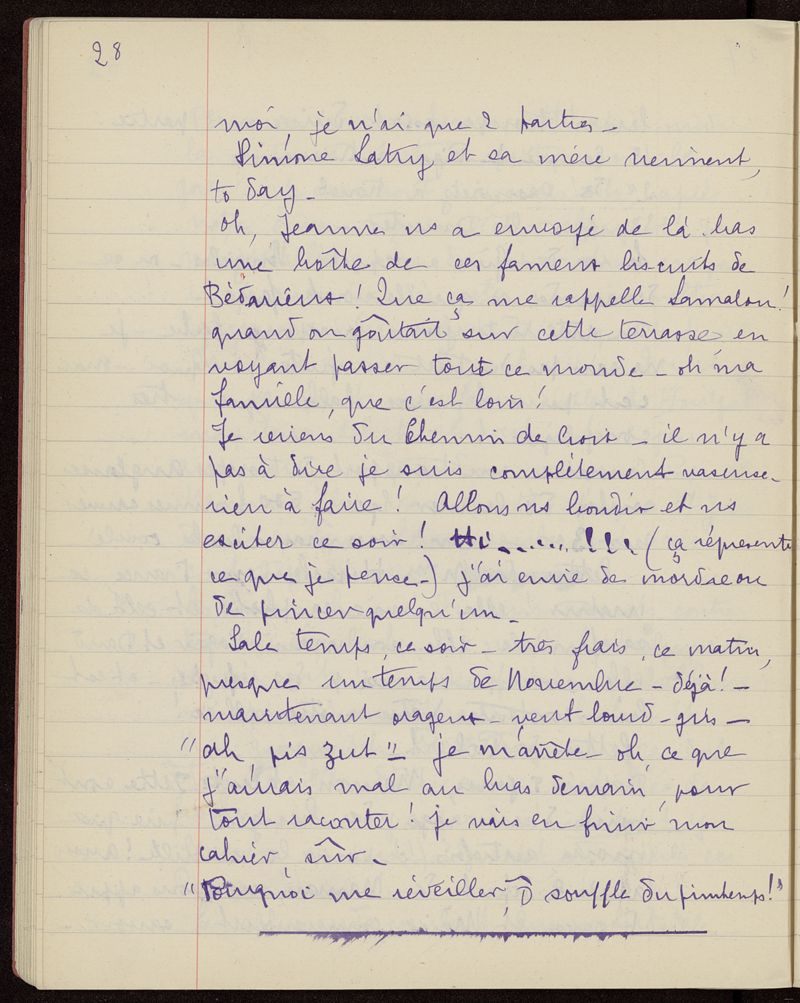 28
moi, je n'ai que 2 parties –
Simone Latry et sa mère viennent,
to day –
Oh, Jeanne ns a envoyé de là-bas
une boîte de ces fameux biscuits de
Bédarieux ! Que ça me rappelle Lamalou !
quand on goûtait sur cette terrasse en
voyant passer tout ce monde – oh ma
famille, que c'est loin !
Je reviens du Chemin de Croix – il n'y a
pas à dire je suis complètement vaseuse –
rien à faire ! Allons ns bondir et ns
exciter ce soir ! ....... ! ! ! (ça représente
ce que je pense –) j'ai envie de mordre ou
de pincer quelqu'un –
Sale temps, ce soir – très frais, ce matin,
presque un temps de Novembre – déjà ! –
maintenant orageux – vent lourd – gris –
"ah pis zut" je m'arrête – oh, ce que
j'aurais mal au bras demain, pour
tout raconter ! je vais en finir mon
cahier, sûr –
"Pourquoi me réveiller, Ô souffle du printemps !"